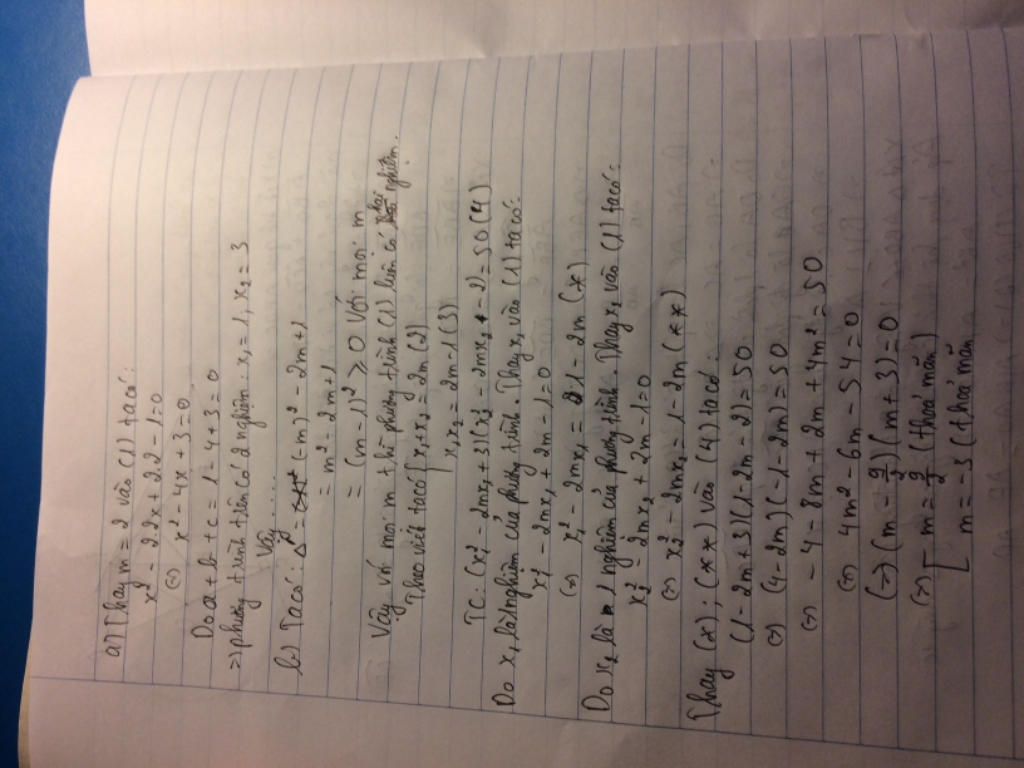 a) Thay m = 2 vào (1) ta có:
x² - 2.2x + 2.2 - 1 = 0
(=) x² - 4x + 3 = 0
Do a + b + c = 1 - 4 + 3 = 0
=) phương trình trên có 2 nghiệm x₁ = 1, x₂ = 3
Vậy ....
b) Ta có: Δ' = (-m)² - 2m + 1
= m² - 2m + 1
= (m - 1)² ⩾ 0 với mọi m
Vậy với mọi m thì phương trình (1) luôn có nghiệm.
Theo viét ta có [ x₁ + x₂ = 2m (2)
x₁x₂ = 2m - 1 (3)
TC: (x₁² - 2mx₁ + 3)(x₂² - 2mx₂ - 2) = 50 (4)
Do x₁ là nghiệm của phương trình. Thay x₁ vào (1) ta có:
x₁² - 2mx₁ + 2m - 1 = 0
(=) x₁² - 2mx₁ = 1 - 2m (*)
Do x₂ là 1 nghiệm của phương trình. Thay x₂ vào (1) ta có:
x₂² - 2mx₂ + 2m - 1 = 0
(=) x₂² - 2mx₂ = 1 - 2m (**)
Thay (*); (**) vào (4) ta có:
(1 - 2m + 3)(1 - 2m - 2) = 50
(=) (4 - 2m)(-1 - 2m) = 50
(=) -4 - 8m + 2m + 4m² = 50
(=) 4m² - 6m - 54 = 0
(=) (m - 9/2)(m + 3) = 0
(=) [ m = 9/2 (thoả mãn)
m = -3 (thoả mãn